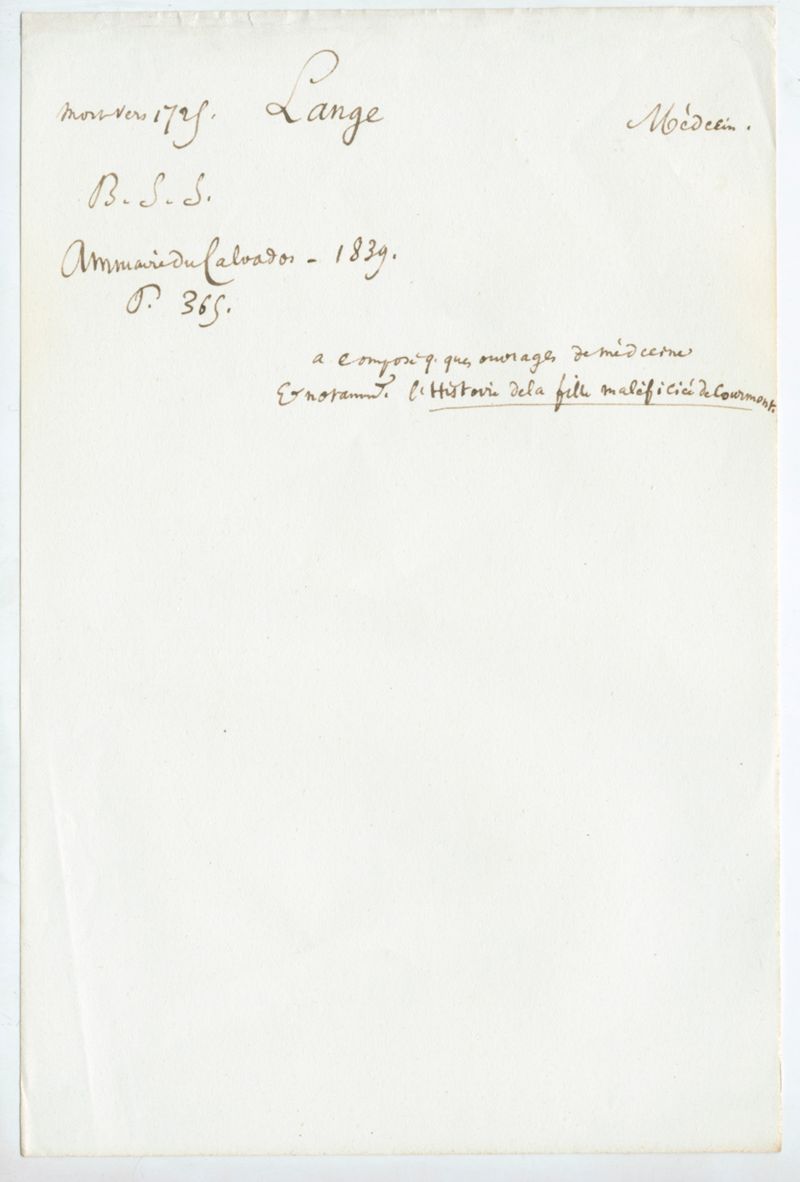 Mort vers 1725. Lange Médecin.
B. S. S.
Annuaire du Calvados - 1839.
P. 365.
a composé q. ques ouvrages de médecine
Et notamm.t l'Histoire de la fille maléficiée de Courmont.